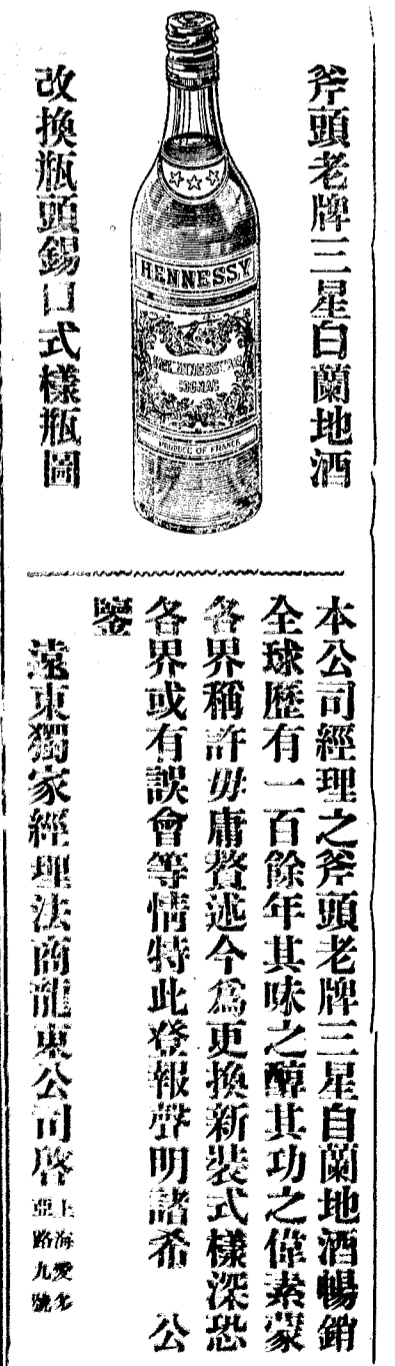 斧頭老牌三星白蘭地酒
☆☆☆
HENNESSY
COGNAC
PRODUCE OF FRANCE
改換瓶頭錫口式樣瓶圖
本公司經理之斧頭老牌三星自蘭地酒暢銷
全球歷有一百餘年其味之醇其功之偉素蒙
各界稱許毋庸贅述今爲更換新裝式樣深恐
各界或有誤會等情特此登報聲明諸希 公
鑒
遠東獨家經理法商龍東公司啓
上海愛多
亞路九號